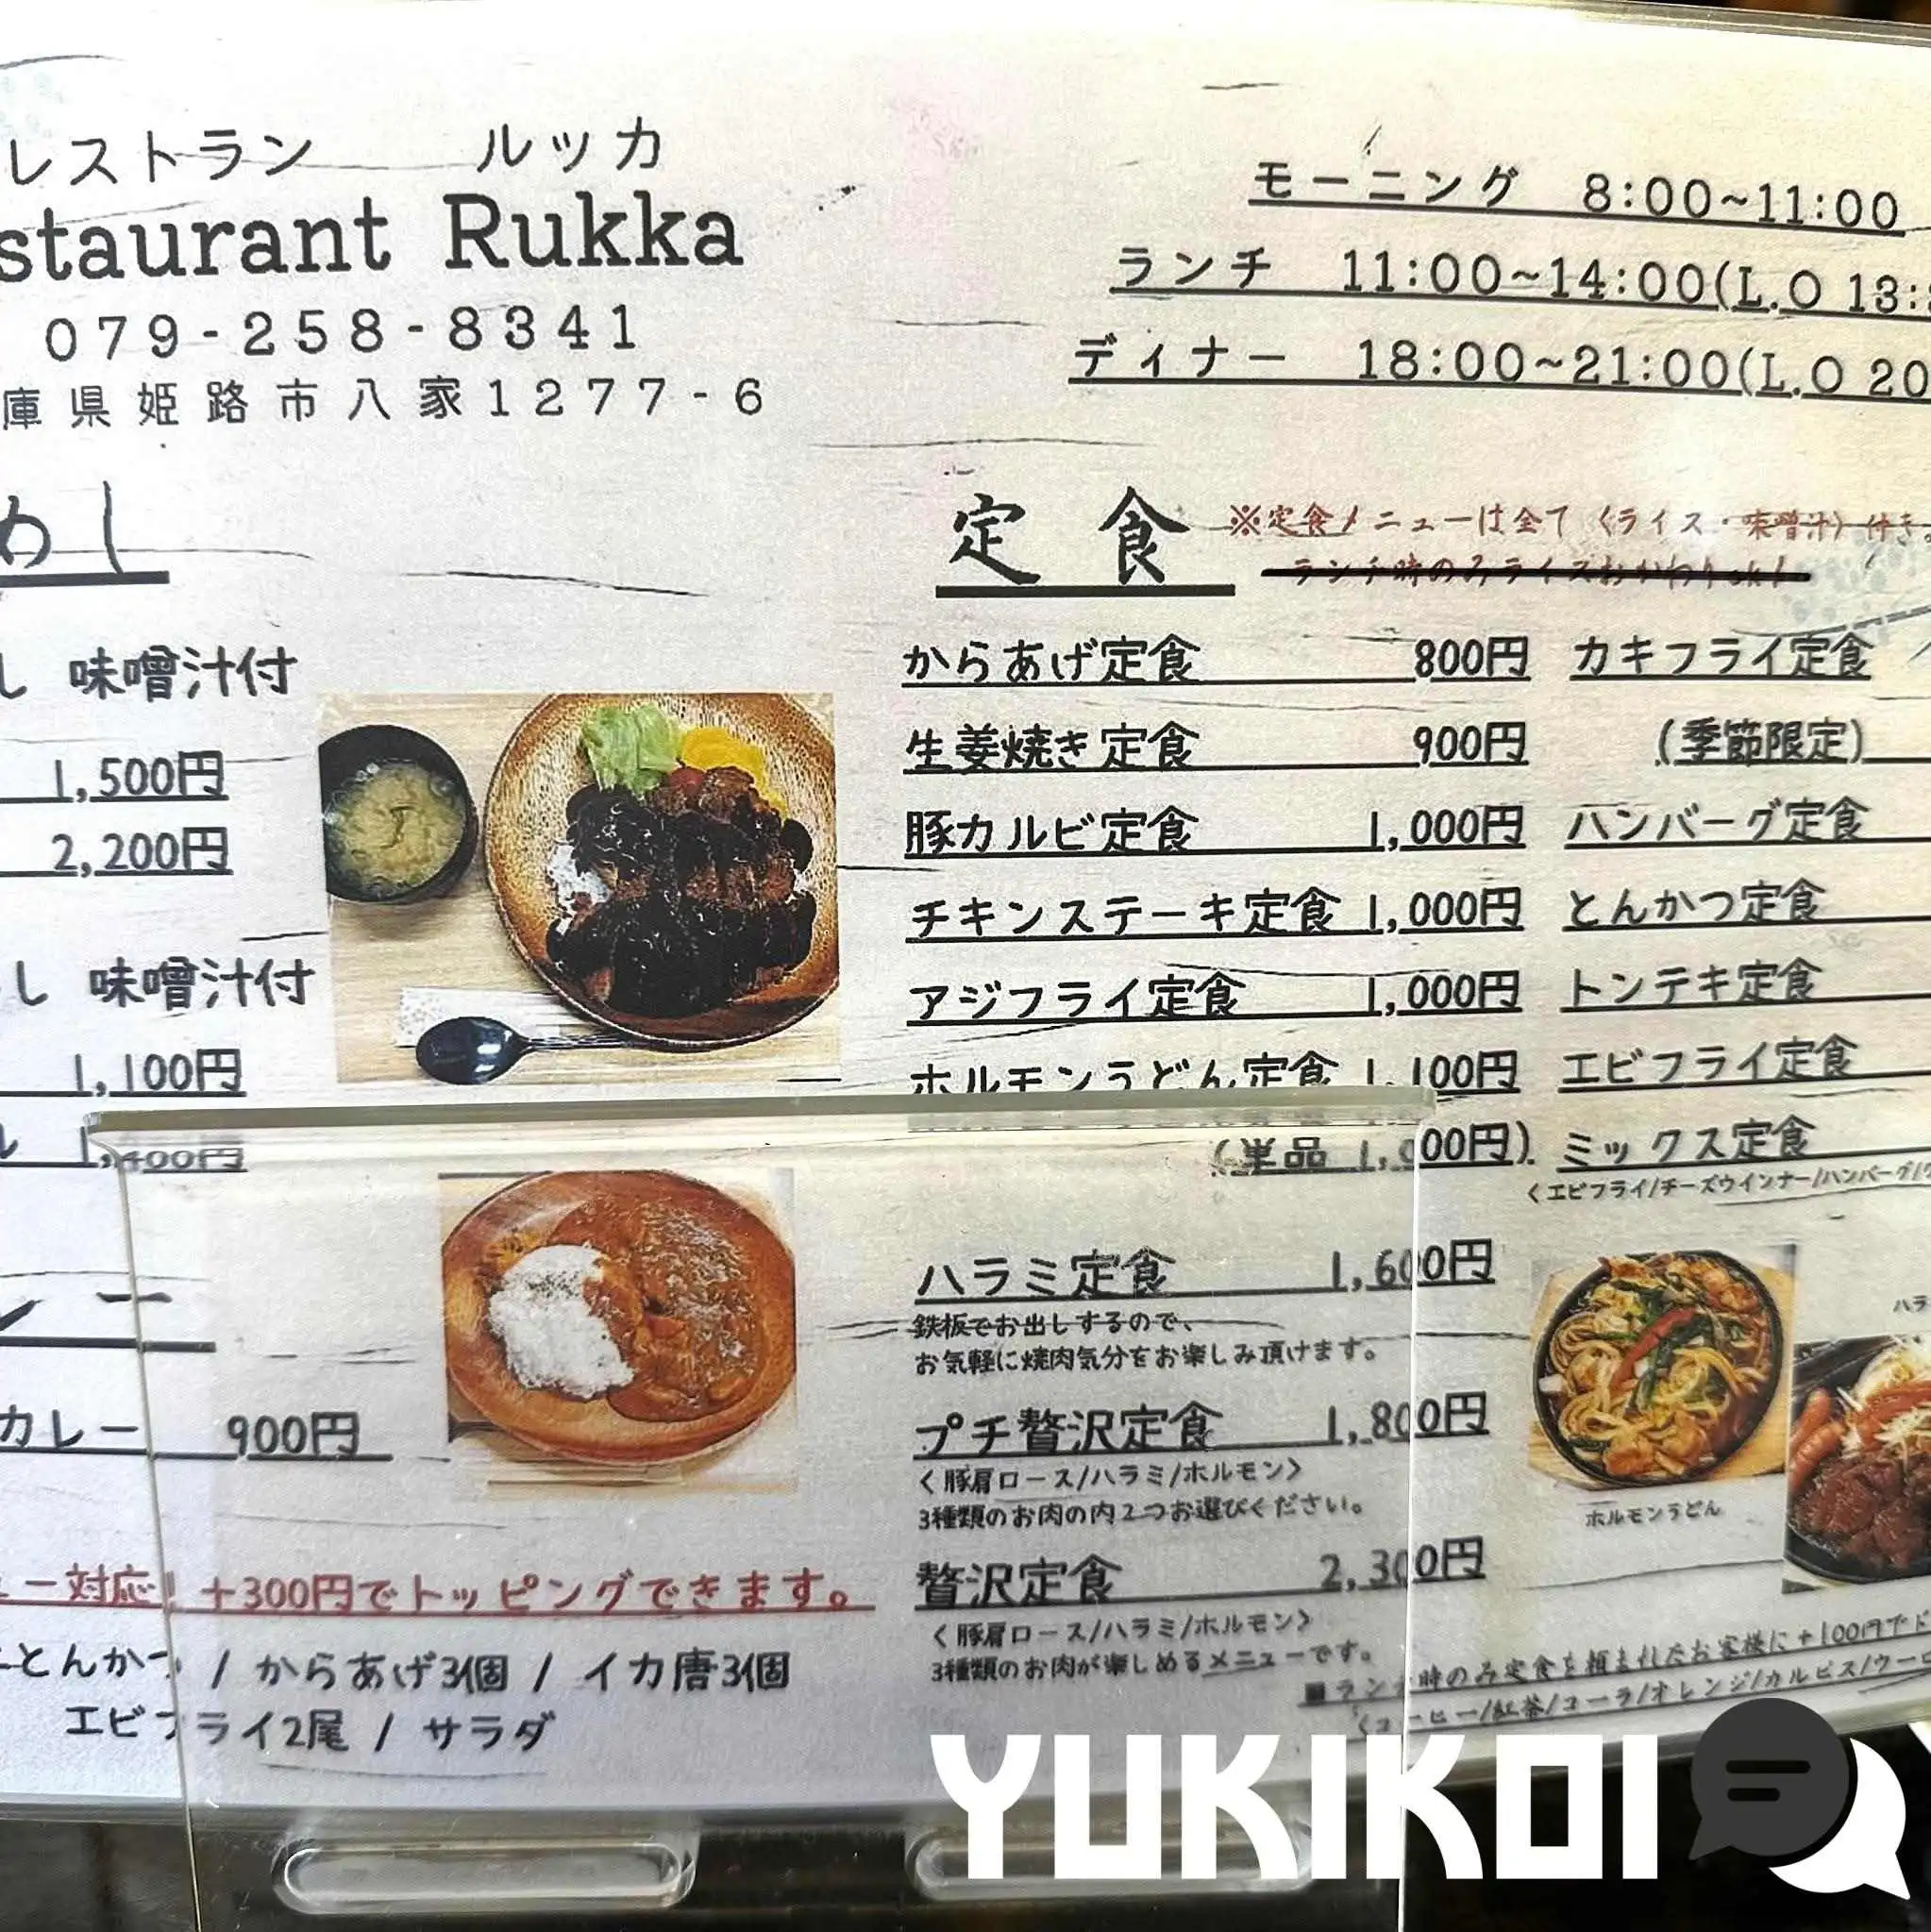 レストラン ルッカ
staurant Rukka
079-258-8341
庫県姫路市八家1277-6
モーニング 8:00~11:00
ランチ 11:00~14:00(L.O 13:
ディナー 18:00~21:00(L.O 20
めし
し 味噌汁付
1,500円
2,200円
し 味噌汁付
1,100円
1,400円
レー
カレー 900円
ー対応! +300円でトッピングできます。
とんかつ / からあげ3個 / イカ唐3個
エビフライ2尾 / サラダ
定食 ※定食メニューは全て〈ライス・味噌汁〉付き。
ランチ時のみライスおかわりok!
からあげ定食 800円
生姜焼き定食 900円
豚カルビ定食 1,000円
チキンステーキ定食 1,000円
アジフライ定食 1,000円
ホルモンうどん定食 1,100円
(単品 1,000円)
ハラミ定食 1,600円
鉄板でお出しするので、
お気軽に焼肉気分をお楽しみ頂けます。
プチ贅沢定食 1,800円
〈豚肩ロース/ハラミ/ホルモン〉
3種類のお肉の内2つお選びください。
贅沢定食 2,300円
〈豚肩ロース/ハラミ/ホルモン〉
3種類のお肉が楽しめるメニューです。
カキフライ定食
(季節限定)
ハンバーグ定食
とんかつ定食
トンテキ定食
エビフライ定食
ミックス定食
〈エビフライ/チーズウインナー/ハンバーグ/
ハラ
ホルモンうどん
■ランチ時のみ定食を頼まれたお客様に+100円でド
〈コーヒー/紅茶/コーラ/オレンジ/カルピス/ウーロ
YUKIKOI